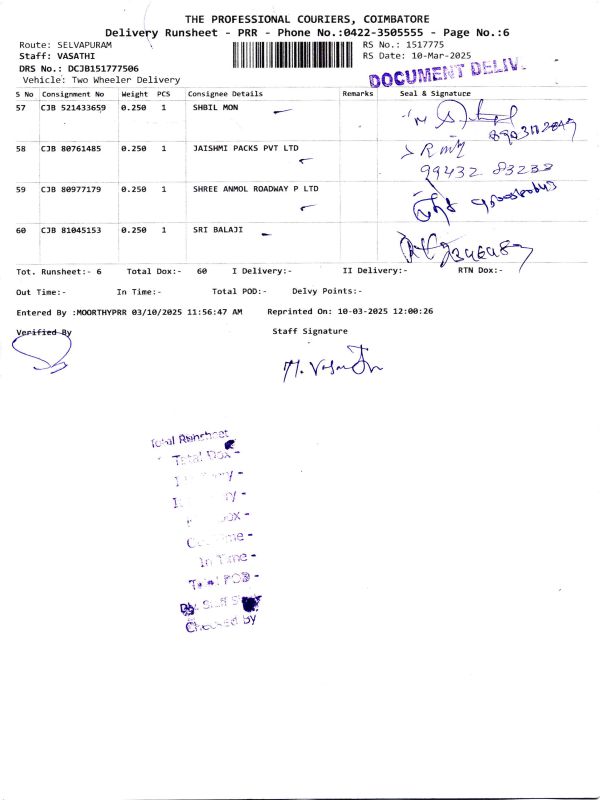 THE PROFESSIONAL COURIERS, COIMBATORE
Delivery Runsheet - PRR - Phone No.:0422-3505555 - Page No.:6
Route: SELVAPURAM RS No.: 1517775
Staff: VASATHI RS Date: 10-Mar-2025
DRS No.: DCJB151777506
DOCUMENT DELIV.
Vehicle: Two Wheeler Delivery
S No Consignment No Weight PCS Consignee Details Remarks Seal & Signature
57 CJB 521433659 0.250 1 SHBIL MON
58 CJB 80761485 0.250 1 JAISHMI PACKS PVT LTD
99432 83233
59 CJB 80977179 0.250 1 SHREE ANMOL ROADWAY P LTD
60 CJB 81045153 0.250 1 SRI BALAJI
Tot. Runsheet:- 6 Total Dox:- 60 I Delivery:- II Delivery:- RTN Dox:-
Out Time:- In Time:- Total POD:- Delvy Points:-
Entered By :MOORTHYPRR 03/10/2025 11:56:47 AM Reprinted On: 10-03-2025 12:00:26
Verified By Staff Signature
Total Runsheet
Total Dox -
In Time -
Total POD -
Checked By